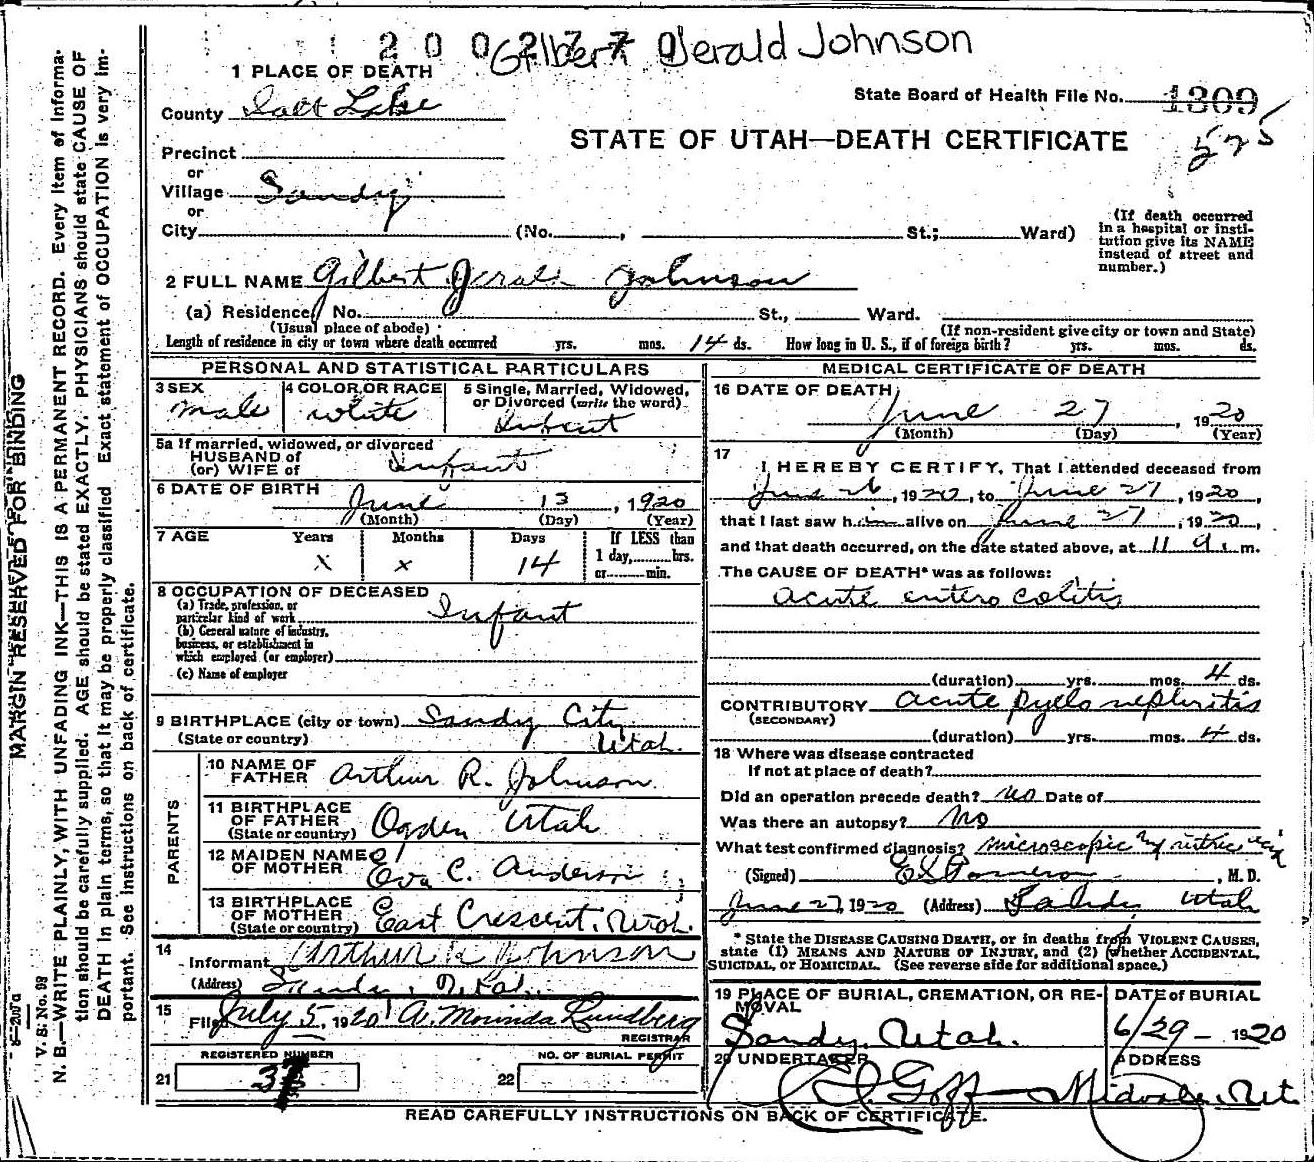 2002770
Gilbert Jerald Johnson
1 PLACE OF DEATH
County Salt Lake
State Board of Health File No. 1309
525
STATE OF UTAH—DEATH CERTIFICATE
Precinct
or
Village Sandy
or
City (No. , St.; Ward)
(If death occurred in a hospital or insti-
tution give its NAME
instead of street and
number.)
2 FULL NAME Gilbert Jerald Johnson
(a) Residence No. St., Ward.
(Usual place of abode) (If non-resident give city or town and State)
Length of residence in city or town where death occurred yrs. mos. 14 ds. How long in U. S., if of foreign birth? yrs. mos. ds.
PERSONAL AND STATISTICAL PARTICULARS
3 SEX
male
4 COLOR OR RACE
white
5 Single, Married, Widowed,
or Divorced (write the word)
Infant
5a If married, widowed, or divorced
HUSBAND of
(or) WIFE of Infant
6 DATE OF BIRTH
June 13, 1920
(Month) (Day) (Year)
7 AGE Years Months Days If LESS than
1 day, hrs.
or min.
x x 14
8 OCCUPATION OF DECEASED
(a) Trade, profession, or
particular kind of work Infant
(b) General nature of industry,
business, or establishment in
which employed (or employer)
(c) Name of employer
9 BIRTHPLACE (city or town) Sandy City
(State or country) Utah.
PARENTS
10 NAME OF
FATHER Arthur R. Johnson
11 BIRTHPLACE
OF FATHER
(State or country) Ogden Utah
12 MAIDEN NAME
OF MOTHER Eva C. Anderson
13 BIRTHPLACE
OF MOTHER
(State or country) East Crescent, Utah.
14
Informant Arthur R Johnson
(Address) Sandy, Utah.
15
Filed July 5, 1920 A. Morinda Lundberg
REGISTRAR
REGISTERED NUMBER
21 37
NO. OF BURIAL PERMIT
22
MEDICAL CERTIFICATE OF DEATH
16 DATE OF DEATH
June 27, 1920
(Month) (Day) (Year)
17
I HEREBY CERTIFY, That I attended deceased from
June 26, 1920, to June 27, 1920,
that I last saw him alive on June 27, 1920,
and that death occurred, on the date stated above, at 11 a. m.
The CAUSE OF DEATH* was as follows:
acute entero colitis
(duration) yrs. mos. 4 ds.
CONTRIBUTORY acute pyelo nephritis
(SECONDARY)
(duration) yrs. mos. 4 ds.
18 Where was disease contracted
If not at place of death?
Did an operation precede death? no Date of
Was there an autopsy? No
What test confirmed diagnosis? microscopic
(Signed) , M. D.
June 27, 1920 (Address) Sandy, Utah
* State the DISEASE CAUSING DEATH, or in deaths from VIOLENT CAUSES,
state (1) MEANS AND NATURE OF INJURY, and (2) whether ACCIDENTAL,
SUICIDAL, or HOMICIDAL. (See reverse side for additional space.)
19 PLACE OF BURIAL, CREMATION, OR RE-
MOVAL
Sandy, Utah.
DATE of BURIAL
6/29 - 1920
20 UNDERTAKER
Goff
ADDRESS
Midvale, Ut.
READ CAREFULLY INSTRUCTIONS ON BACK OF CERTIFICATE.
MARGIN RESERVED FOR BINDING
V. S. No. 98
N. B.—WRITE PLAINLY, WITH UNFADING INK—THIS IS A PERMANENT RECORD. Every item of informa-
tion should be carefully supplied. AGE should be stated EXACTLY. PHYSICIANS should state CAUSE OF
DEATH in plain terms, so that it may be properly classified Exact statement of OCCUPATION is very im-
portant. See instructions on back of certificate.